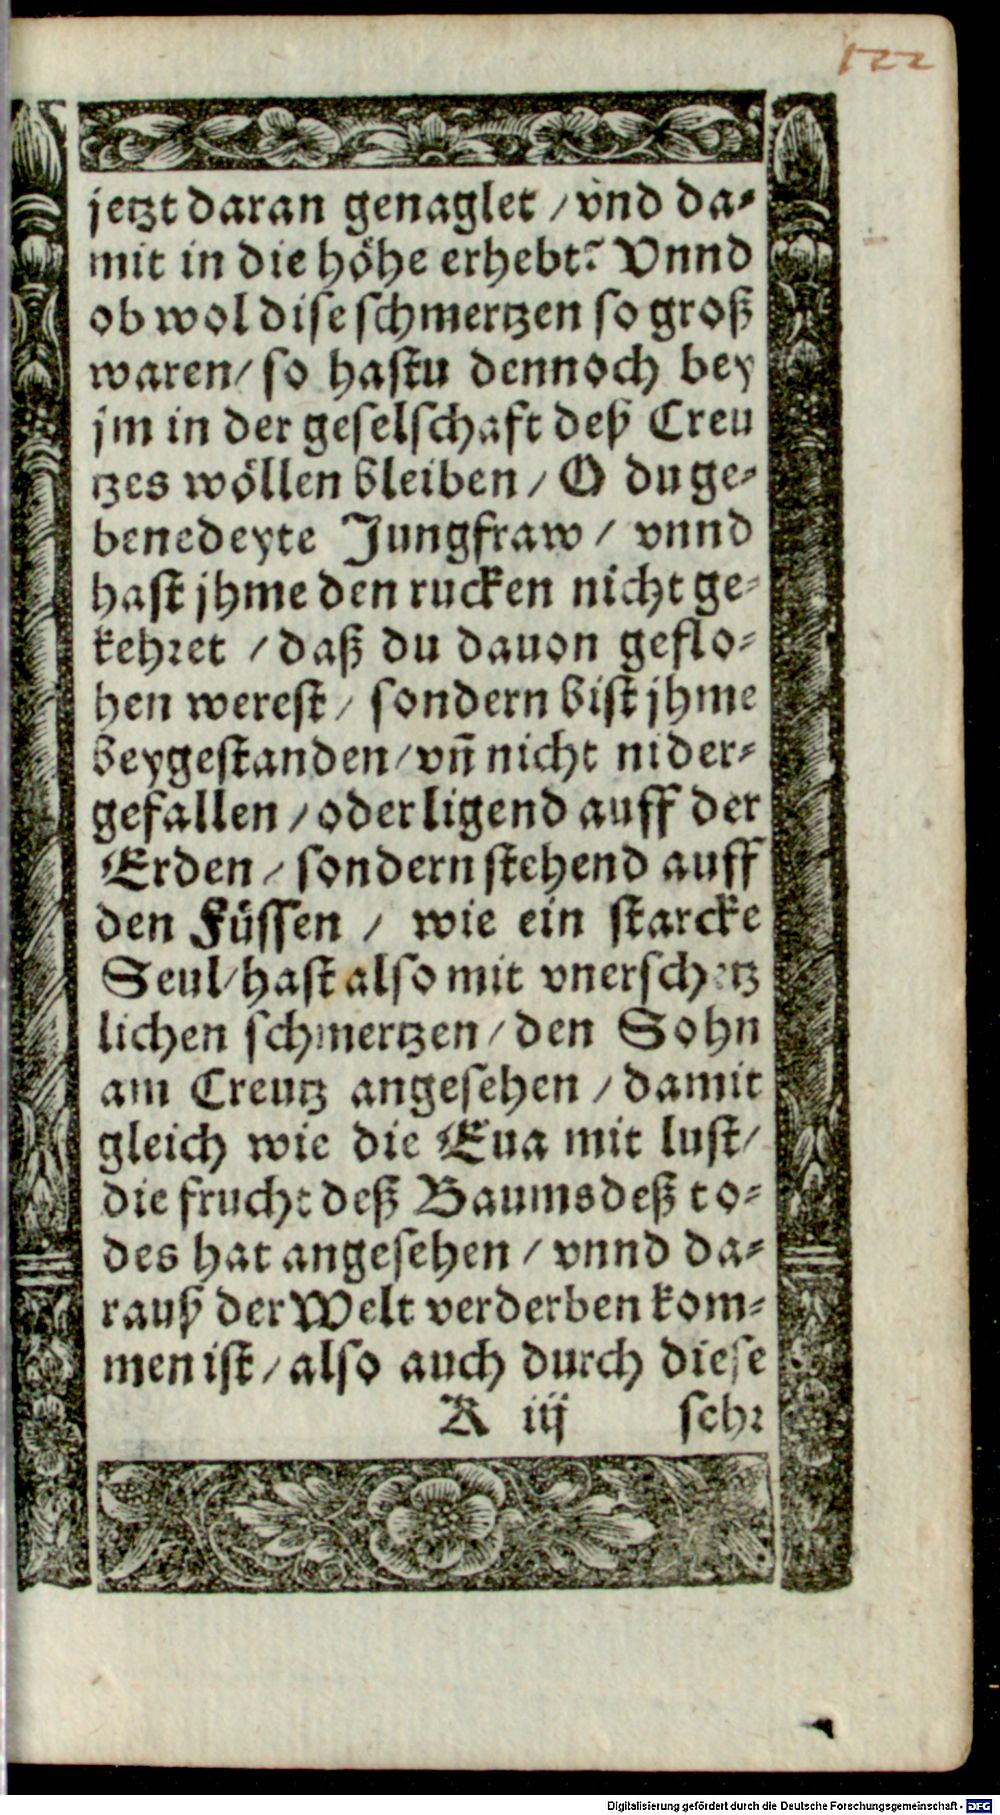 122
jetzt daran genaglet / vnd da⸗
mit in die höhe erhebt? Vnnd
ob wol dise schmertzen so groß
waren / so hastu dennoch bey
jm in der geselschaft deß Creu
tzes wöllen bleiben / O du ge⸗
benedeyte Jungfraw / vnnd
hast jhme den rucken nicht ge⸗
kehret / daß du dauon geflo⸗
hen werest / sondern bist jhme
beygestanden / vñ nicht nider⸗
gefallen / oder ligend auff der
Erden / sondern stehend auff
den Füssen / wie ein starcke
Seul / hast also mit vnerschetz
lichen schmertzen / den Sohn
am Creutz angesehen / damit
gleich wie die Eua mit lust /
die frucht deß Baums deß to⸗
des hat angesehen / vnnd da⸗
rauß der Welt verderben kom⸗
men ist / also auch durch diese
A iij sehr
Digitalisierung gefördert durch die Deutsche Forschungsgemeinschaft - DFG